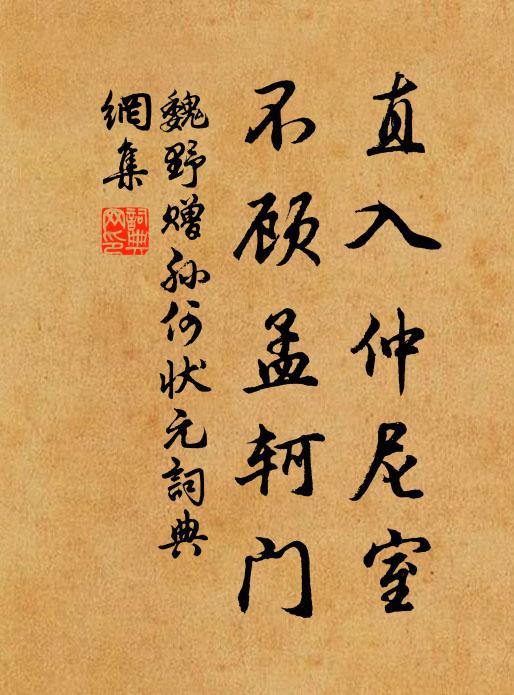 直入仲尼室
不顾孟轲门
魏野赠孙何状元詞典
網集
詞典
网印